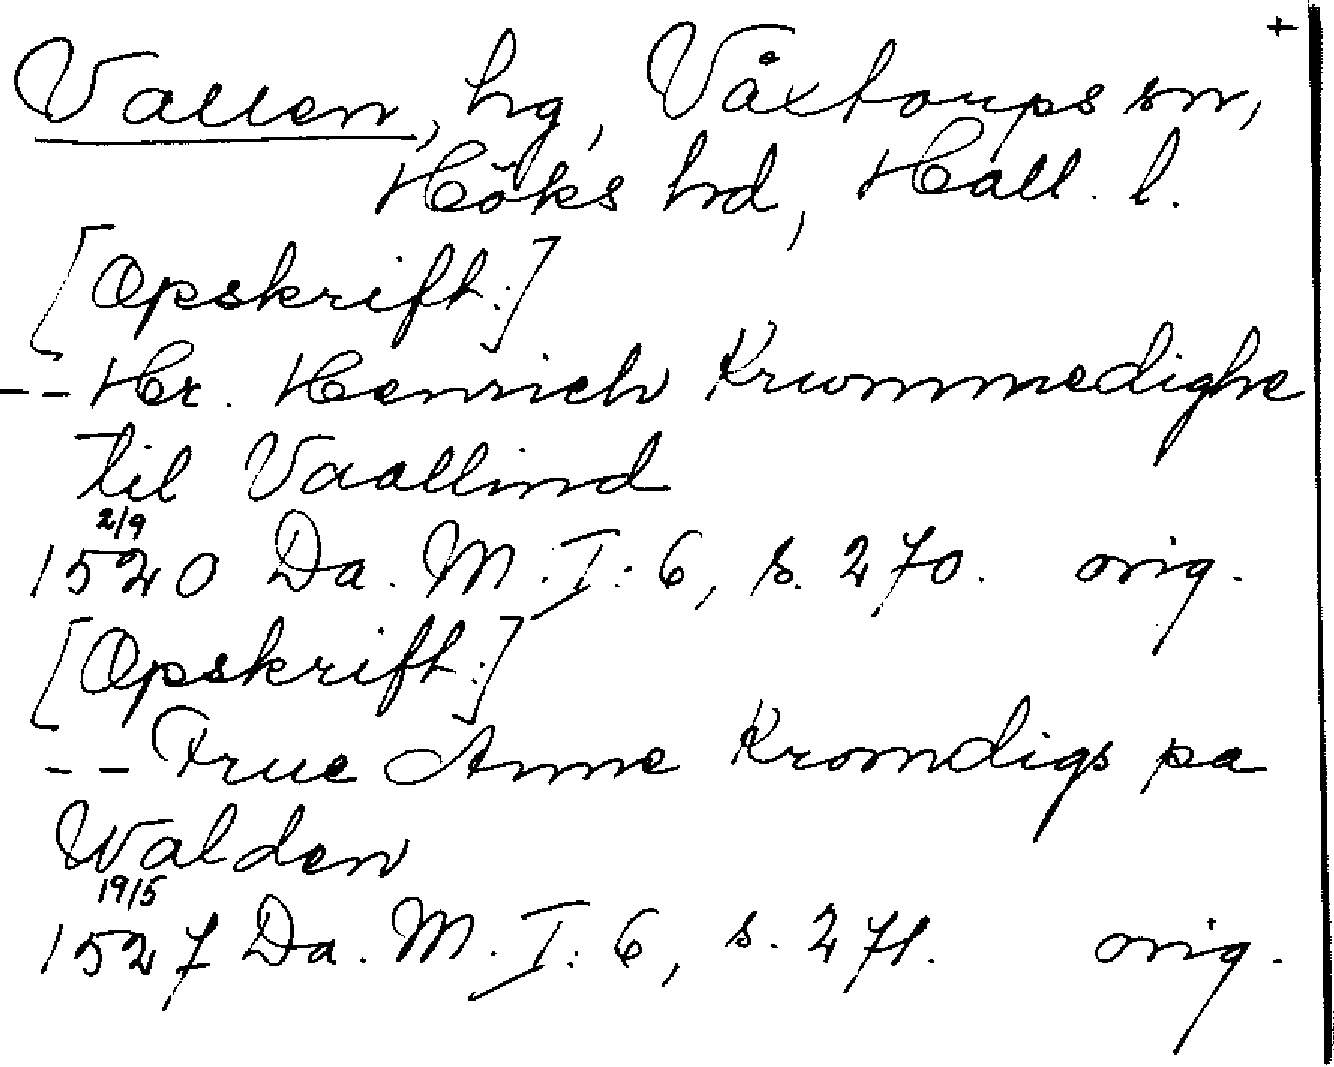 +
Vallen, hg, Våxtorps sn,
Höks hd, Hall. l.
[Opskrift:]
-- Hr. Henrich Krummedighe
til Vaallind
2/9
1520 Da. M. I: 6, s. 270. orig.
[Opskrift:]
-- Frue Anne Kromdigs pa
Walden
19/5
1527 Da. M. I: 6, s. 271. orig.